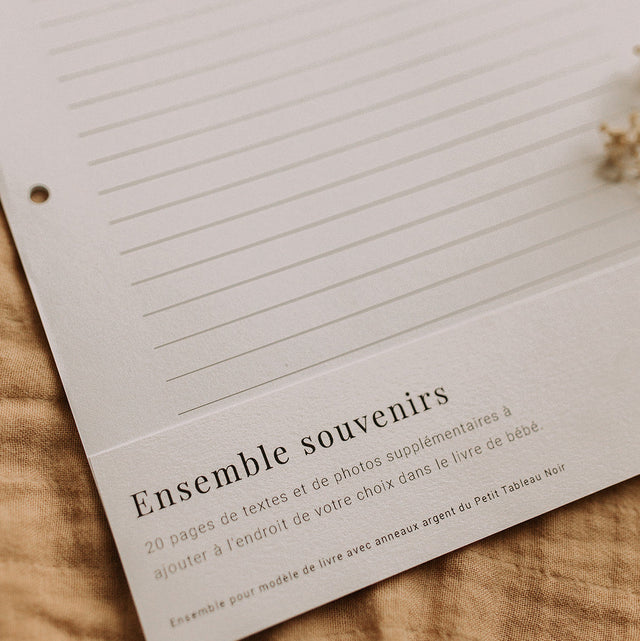 Ensemble souvenirs
20 pages de textes et de photos supplémentaires à
ajouter à l'endroit de votre choix dans le livre de bébé.
Ensemble pour modèle de livre avec anneaux argent du Petit Tableau Noir